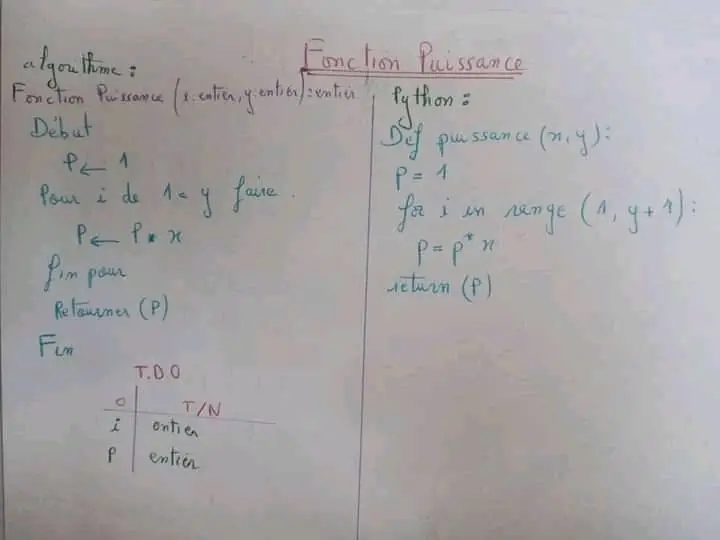 Fonction Puissance
algorithme:
Fonction Puissance (x:entier, y:entier):entier
Début
P ← 1
Pour i de 1 à y faire.
P ← P * x
fin pour
Retourner (P)
Fin
T.D.O
O | T/N
i | entier
P | entier
Python:
Def puissance (x, y):
P = 1
for i in range (1, y + 1):
P = P * x
return (P)